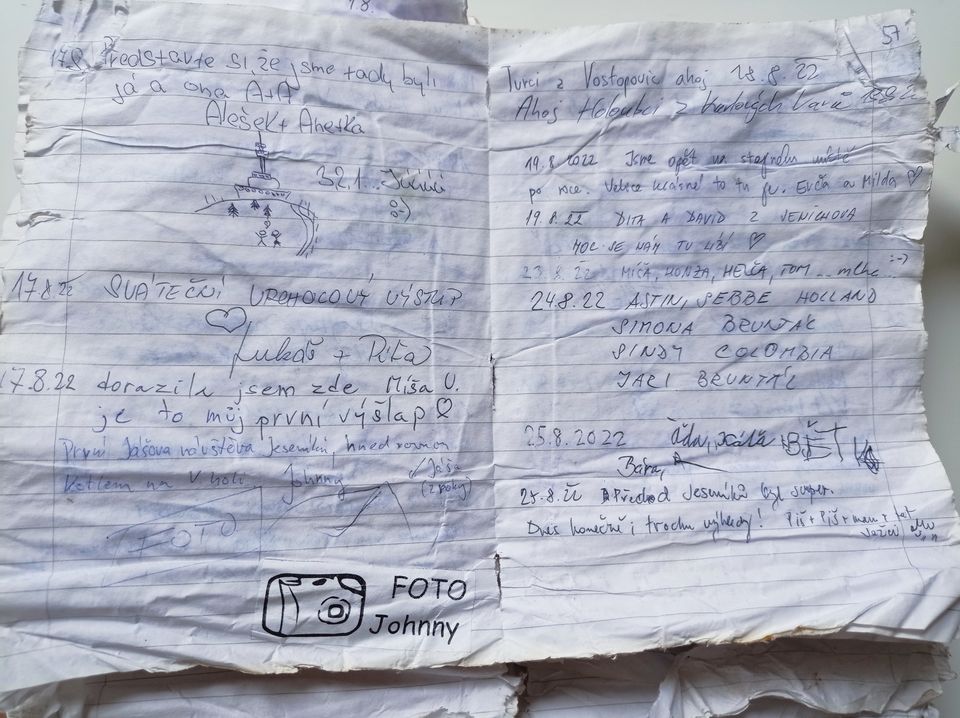 18.
17.8. Představte si že jsme tady byli
já a ona A+A
Alešek + Anetka
3 2 1 ...
17.8.22 SVÁTEČNÍ VRCHOLOVÝ VÝSTUP
Lukáš +
17.8.22 dorazila jsem zde Míša U.
je to můj první výšlap
První Jášova návštěva Jeseníků, hned
Kotlem na Johnny Jáša
(2 roky)
FOTO
FOTO
Johnny
57
Turci z Vostopovic ahoj 18.8.22
Ahoj Holoubci z Karlových Varů
19.8.2022 Jsme opět na stejném místě
po roce. Velice krásné to tu je. Evča a Milda
19.8.22 DITA A DAVID Z
MOC SE NÁM TU LÍBÍ
23.8.22 MÍŠA, HONZA, HELČA, TOM ... mlha :-)
24.8.22 ASTIN, SEBBE HOLLAND
SIMONA BRUNTÁL
SINDY COLOMBIA
JARI BRUNTÁL
25.8.2022 BĚT
Bára,
25.8.22 Přechod Jeseníků byl super.
Dnes konečně i trochu výhledy!